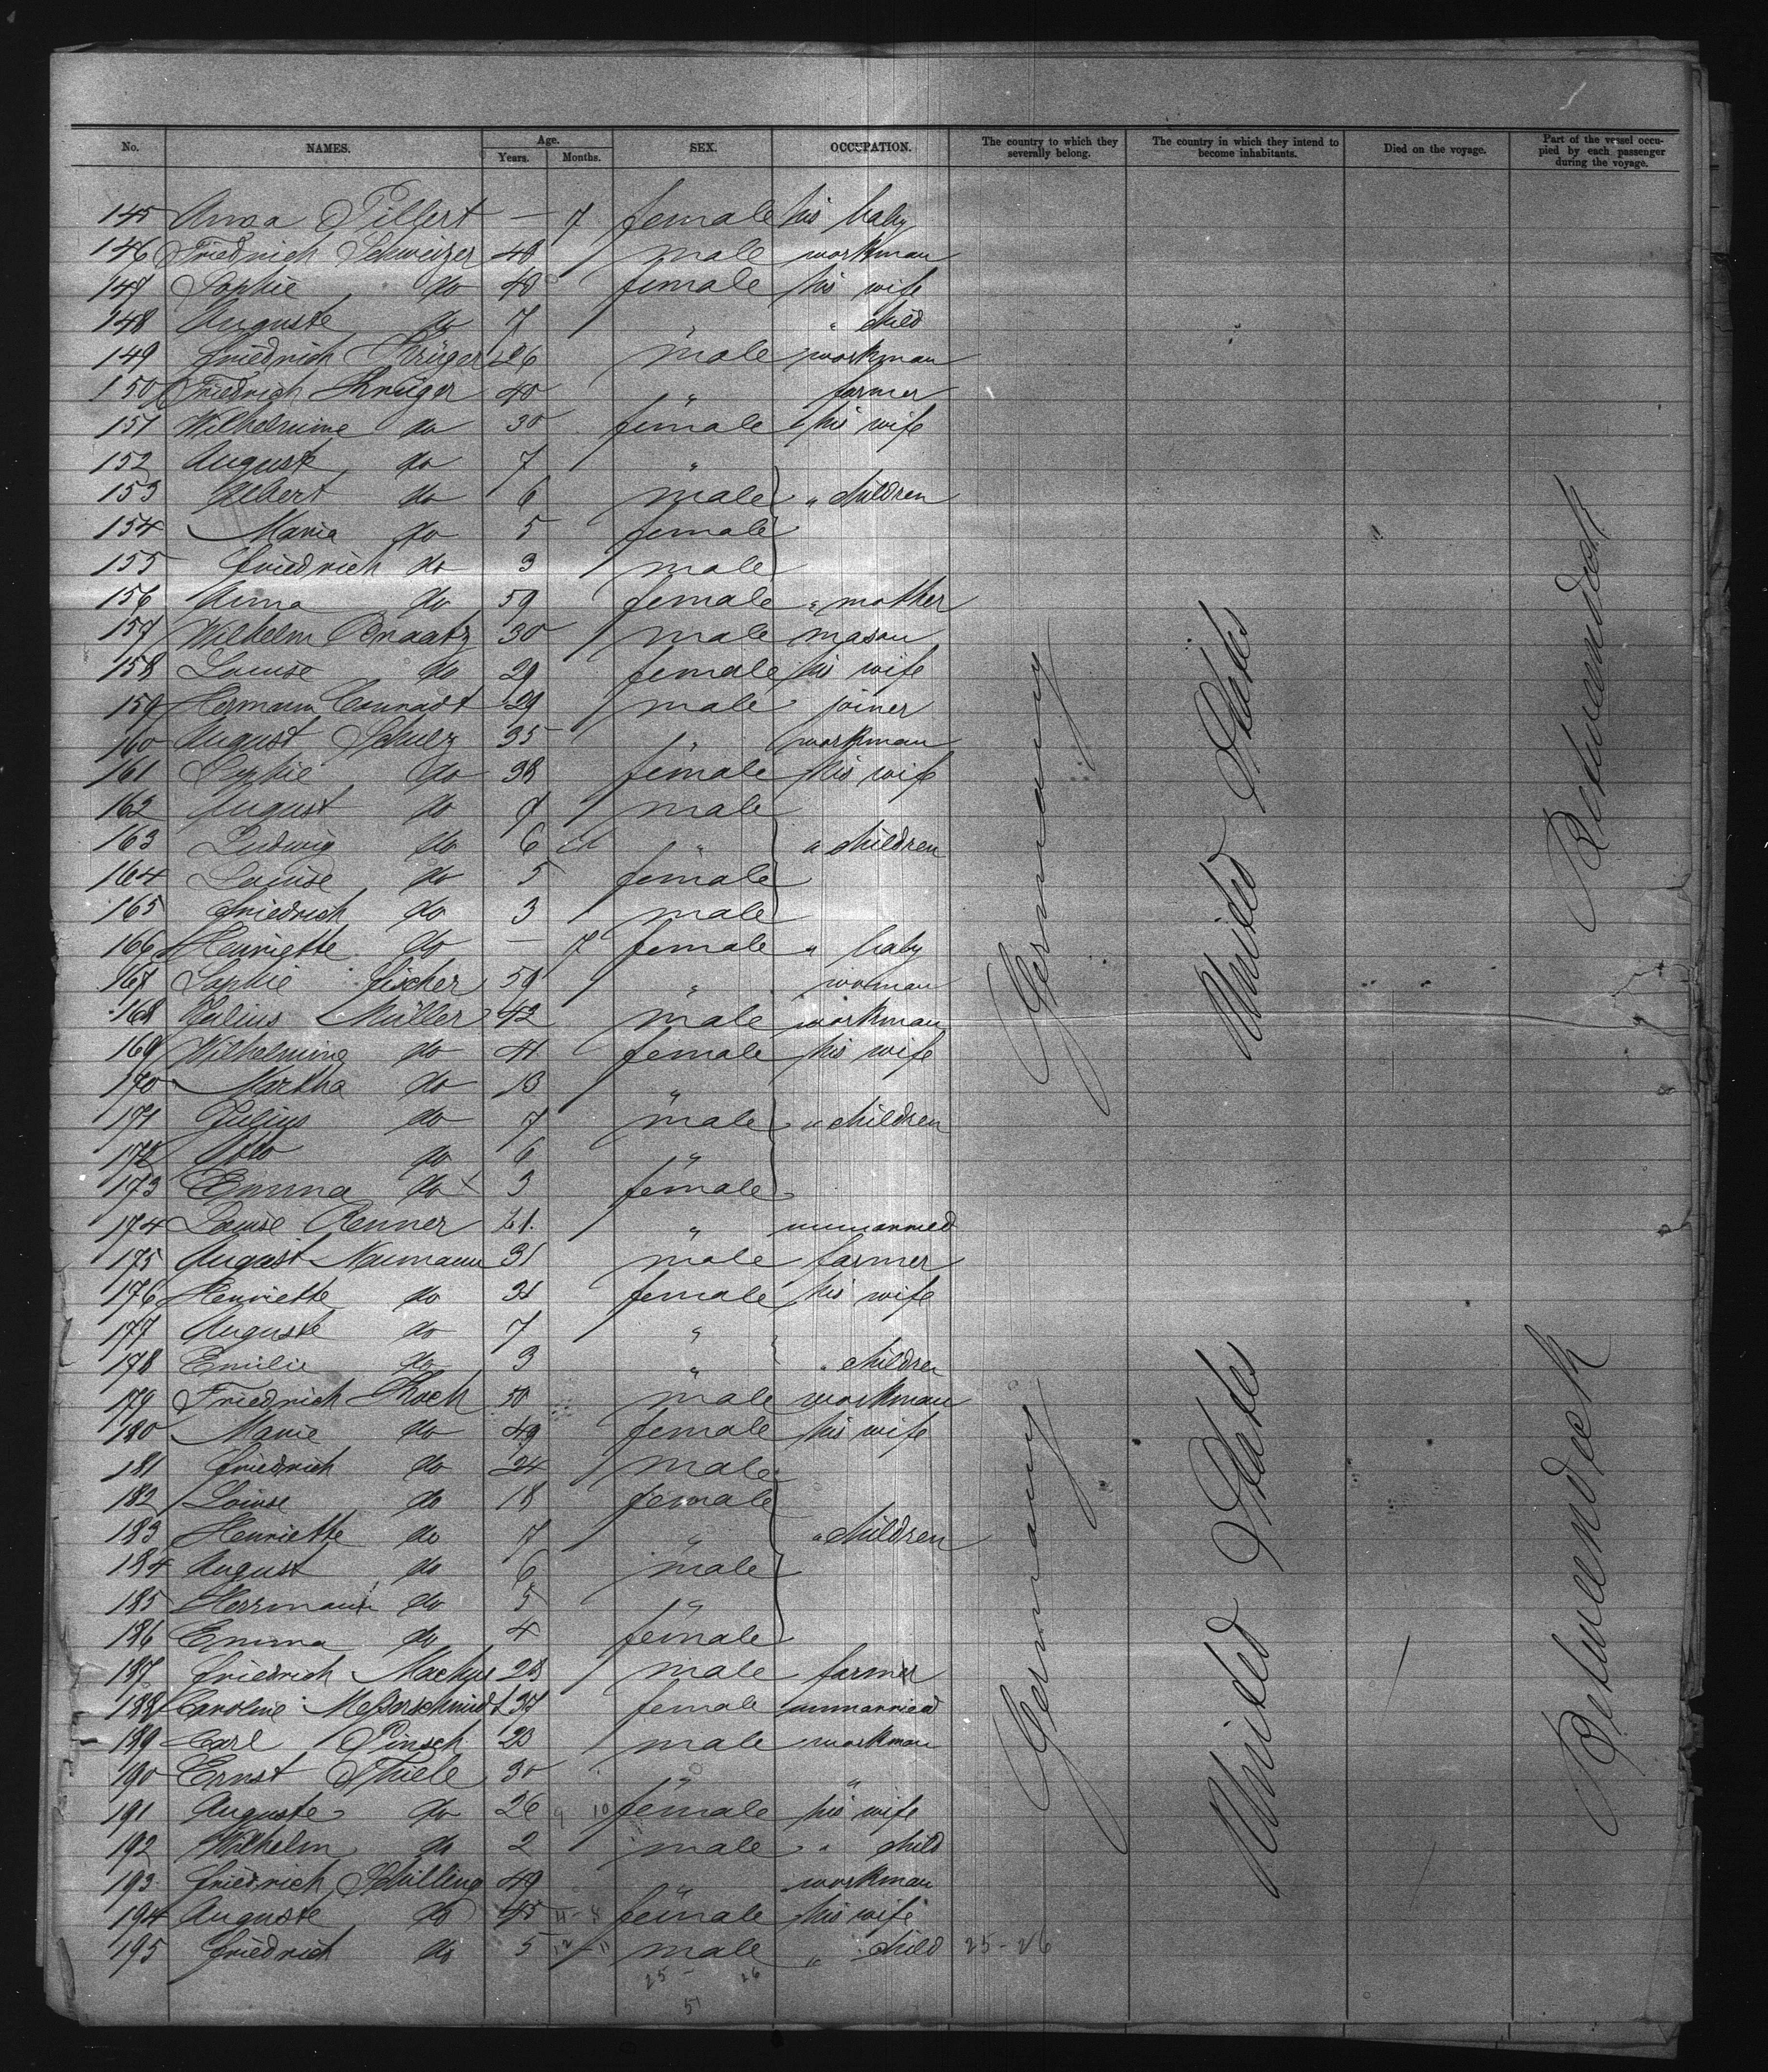 No. NAMES. Age. Years. Months. SEX. OCCUPATION. The country to which they severally belong. The country in which they intend to become inhabitants. Died on the voyage. Part of the vessel occupied by each passenger during the voyage.
145 Anna Pillert — 7 female his baby
146 Friedrich Schweizer 48 male workman
147 Sophie do 48 female his wife
148 Auguste do 7 " " child
149 Friedrich Krüger 26 male workman
150 Friedrich Krüger 40 " farmer
151 Wilhelmine do 30 female his wife
152 Auguste do 7 "
153 Albert do 6 male " children
154 Marie do 5 female
155 Friedrich do 3 male
156 Anna do 59 female " mother
157 Wilhelm 30 male mason
158 Louise do 29 female his wife
159 Hermann Conradt 29 male joiner
160 August Schulz 35 " workman
161 Sophie do 38 female his wife
162 August do 7 male
163 Ludwig do 6 " " children
164 Louise do 5 female
165 Friedrich do 3 male
166 Henriette do — 7 female " baby
167 Sophie Fischer 59 " woman
168 Julius Müller 42 male workman
169 Wilhelmine do 41 female his wife
170 Martha do 13 "
171 Julius do 7 male " children
172 Otto do 6 "
173 Emma do 3 female
174 Louise Renner 21. " unmarried
175 August Naumann 31 male farmer
176 Henriette do 31 female his wife
177 Auguste do 7 "
178 Emilie do 3 " " children
179 Friedrich Koch 50 male workman
180 Marie do 49 female his wife
181 Friedrich do 24 male
182 Louise do 18 female
183 Henriette do 7 " " children
184 August do 6 male
185 Herrmann do 5 "
186 Emma do 4 female
187 Friedrich 28 male farmer
188 Caroline Messerschmidt 37 female unmarried
189 Carl Pinsch 23 male workman
190 Ernst Thiele 30 " "
191 Auguste do 26 9 10 female his wife
192 Wilhelm do 2 male " child
193 Friedrich Schilling 49 " workman
194 Auguste do 45 11 - 8 female his wife
195 Friedrich do 5 12 - 11 male " child 25-26
25 - 26
51
Germany
United States
Betweendeck
Germany
United States
Betweendeck